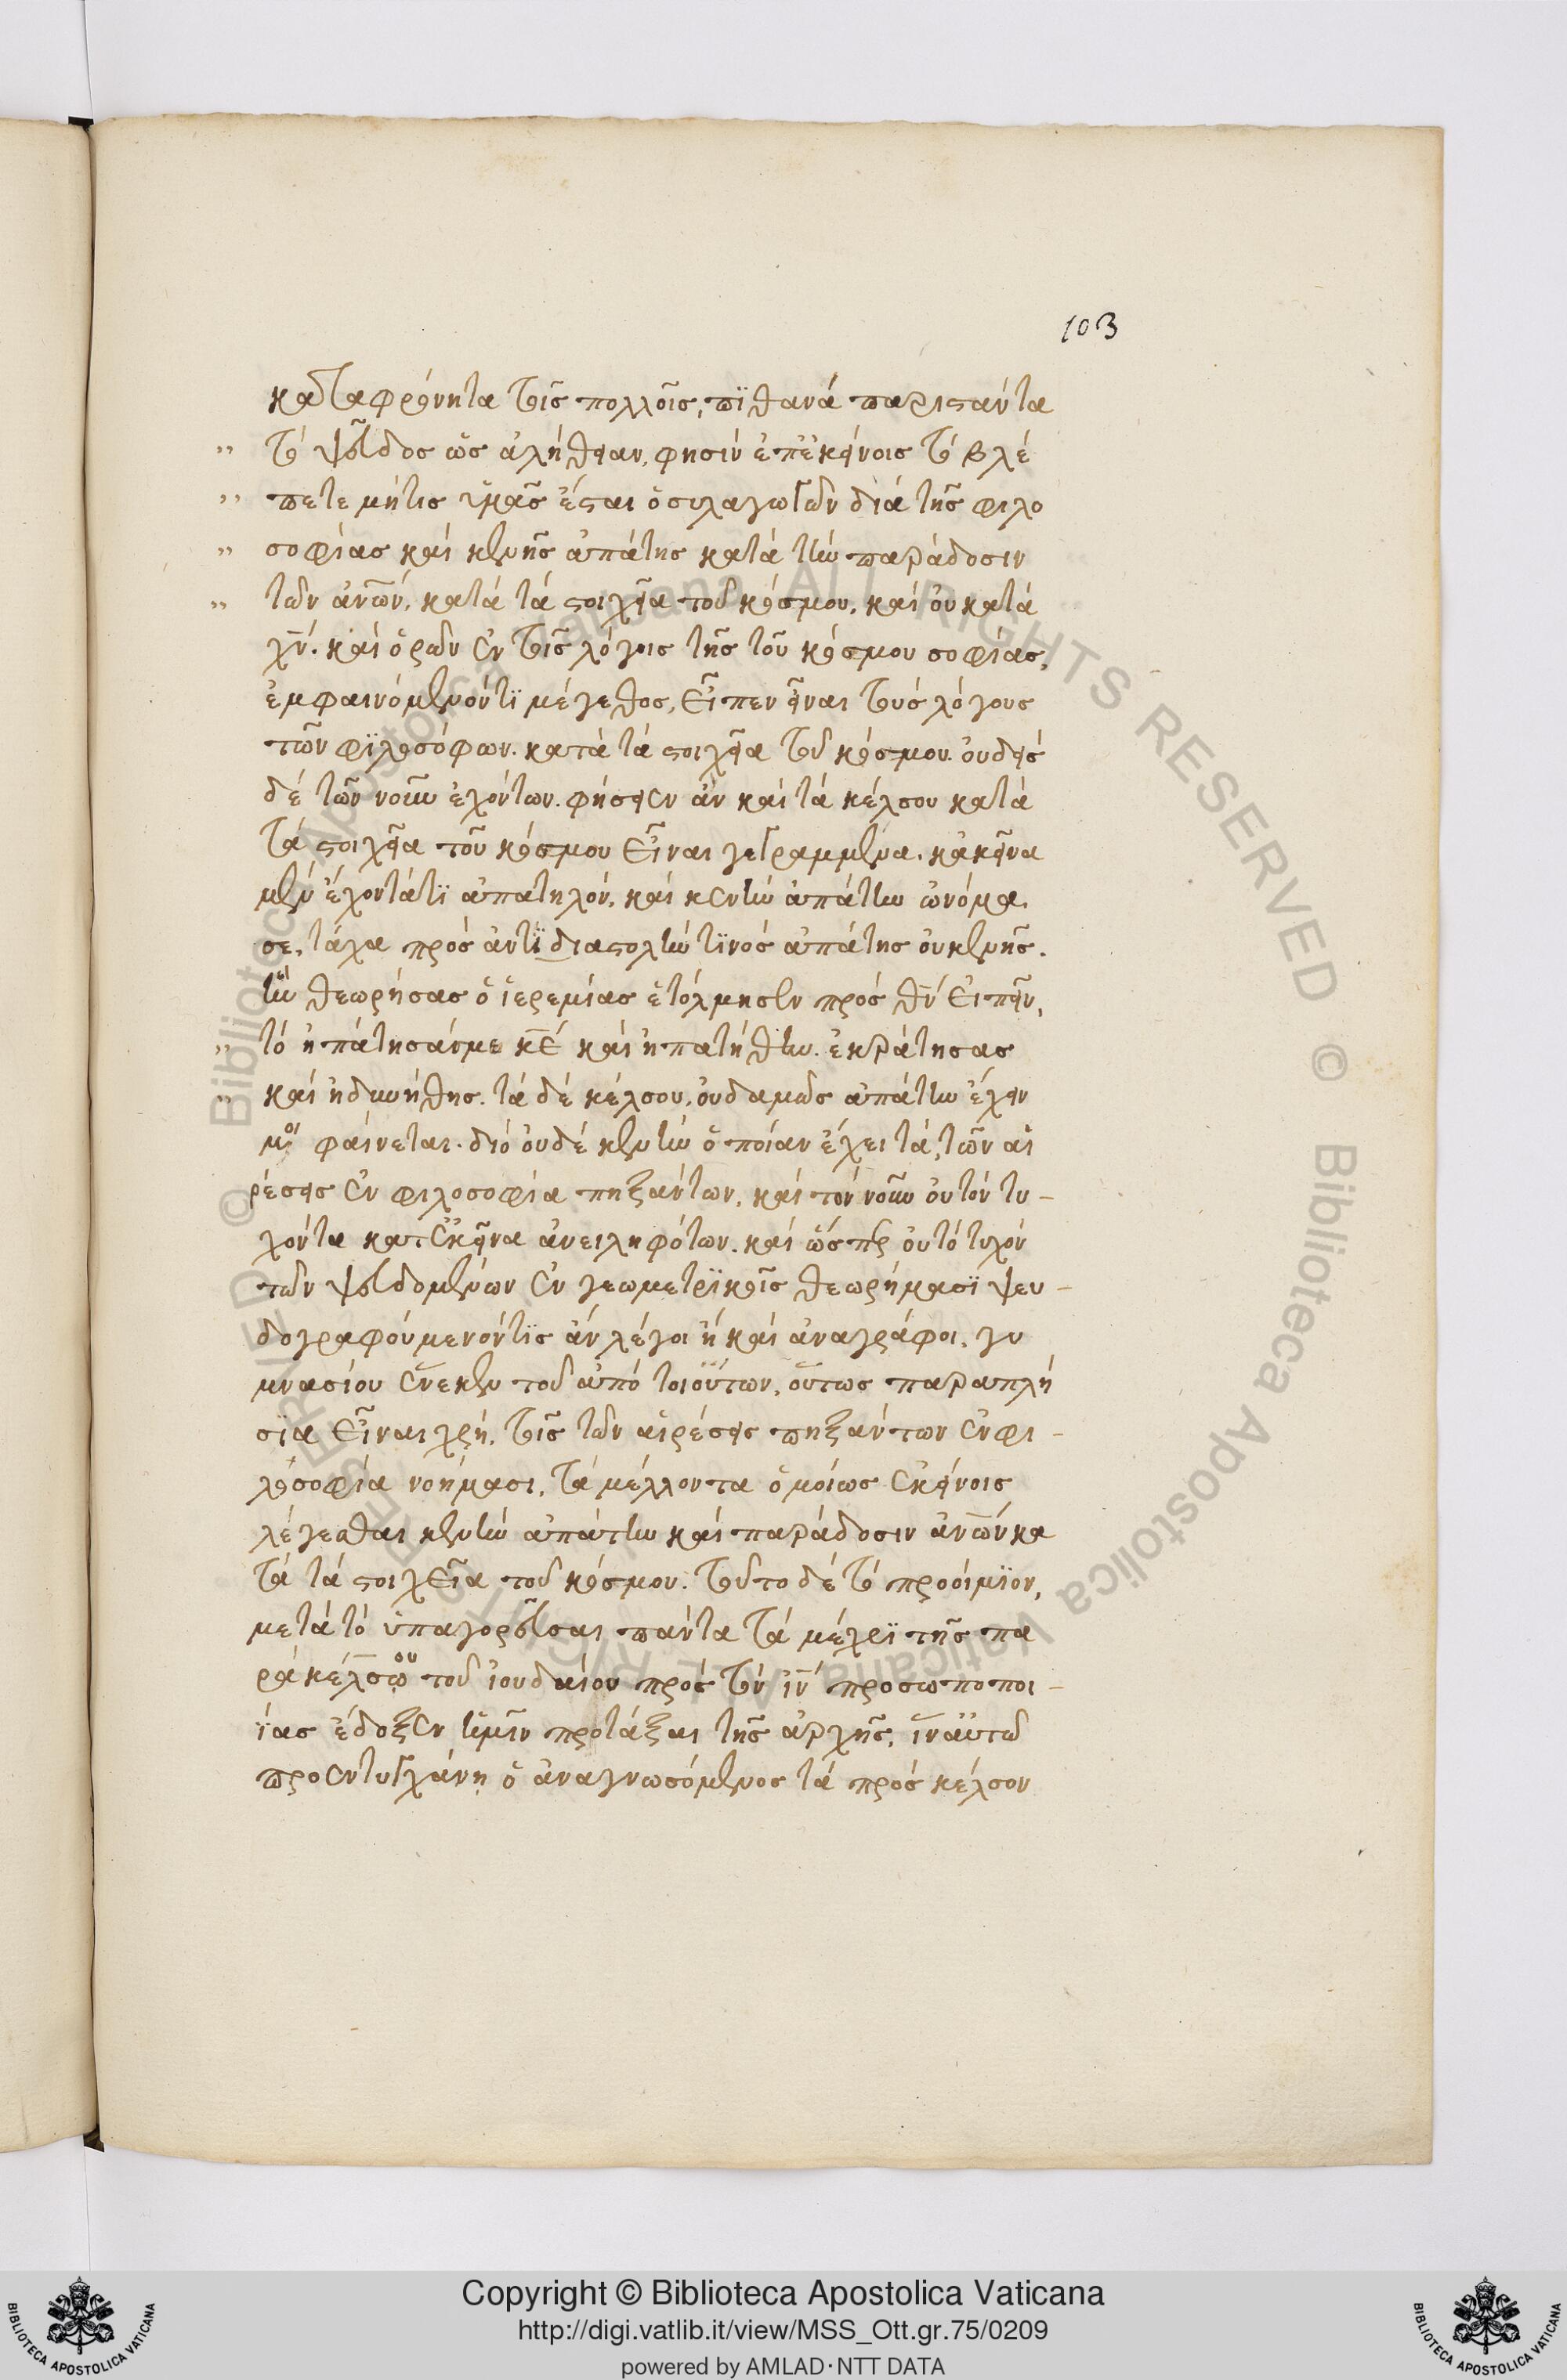 103
καταφρόνητα τοῖς πολλοῖς, πϊθανά παριστάντα
„ τό ψεῦδος ὡς ἀλήθειαν, φησίν ἐπ' ἐκείνοις τό βλέ
„ πετε μήτις ὑμᾶς ἔσται ὁ συλαγωγῶν διά τῆς φιλο
„ σοφίας καί κενῆς ἀπάτης κατά τήν παράδοσιν
„ τῶν ἀν̅ων̅, κατά τά στοιχεῖα τοῦ κόσμου, καί οὐ κατά
χν̅. καί ὁρῶν ἐν τοῖς λόγοις τῆς τοῦ κόσμου σοφίας,
ἐμφαινόμενόν τϊ μέγεθος, εἶπεν εἶναι τούς λόγους
τῶν φϊλοσόφων. κατά τά στοιχεῖα τοῦ κόσμου. οὐδείς
δέ τῶν νοῦν ἐχόντων. φήσειεν ἄν καί τά κέλσου κατά
τά στοιχεῖα τοῦ κόσμου εἶναι γεγραμμένα. κἀκεῖνα
μέν ἔχοντά τϊ ἀπατηλόν, καί κενήν ἀπάτην ὠνόμα
σε, τάχα πρός ἀντϊδιαστολήν τϊνός ἀπάτης οὐ κενῆς.
ἥν θεωρήσας ὁ ἱερεμίας ἐτόλμησεν πρός θν̅ εἰπεῖν,
„ τό ἠπάτησάς με κε̅ καί ἠπατήθην. ἐκράτησας
„ καί ἠδυνήθης. τά δέ κέλσου, οὐδαμῶς ἀπάτην ἔχειν
μοι φαίνεται. διό οὐδέ κενήν ὁποίαν ἔχει τά, τῶν αἱ
ρέσεις ἐν φιλοσοφία πηξάντων, καί τόν νοῦν οὐ τόν τυ-
χόντα κατ' ἐκεῖνα ἀνειληφότων. καί ὥσπερ οὐ τό τυχόν
τῶν ψευδομένων ἐν γεωμετρϊκοῖς θεωρήμασϊ ψευ-
δογραφούμενόν τϊς ἄν λέγοι ἤ καί ἀναγράφοι, γυ
μνασίου ἕνεκεν τοῦ ἀπό τοιούτων, οὕτως παραπλή
σϊα εἶναι χρή, τοῖς τῶν αἱρέσεις πηξάντων ἐν φι-
λοσοφία νοήμασι, τά μέλλοντα ὁμοίως ἐκείνοις
λέγεσθαι κενήν ἀπάτην καί παράδοσιν ἀν̅ων̅ κα
τά τά στοιχεῖα τοῦ κόσμου. τοῦτο δέ τό προοίμϊον,
μετά τό ὑπαγορεῦσαι πάντα τά μέχρϊ τῆς πα
ρά κέλσῳου τοῦ ἰουδαίου πρός τόν ἰν̅ προσωποποι-
ΐας ἔδοξεν ἡμῖν προτάξαι τῆς ἀρχῆς, ἵν' αὐτῶ
προεντυγχάνῃ ὁ ἀναγνωσόμενος τά πρός κέλσον
Copyright © Biblioteca Apostolica Vaticana
http://digi.vatlib.it/view/MSS_Ott.gr.75/0209
powered by AMLAD·NTT DATA
BIBLIOTECA APOSTOLICA VATICANA
BIBLIOTECA APOSTOLICA VATICANA
© Biblioteca Apostolica Vaticana ALL RIGHTS RESERVED © Biblioteca Apostolica Vaticana ALL RIGHTS RESERVED